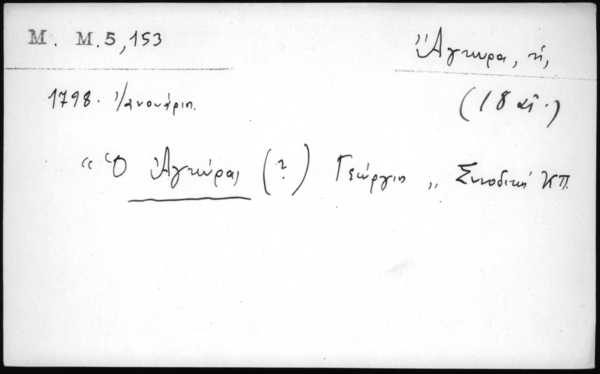 M. M.5,153
Ἄγκυρα, ἡ,
1798. Ἰανουάριος.
(18 αἰ.)
“Ὁ Ἀγκύρας (?) Γεώργιος„ Συνοδικὴ ΚΠ.